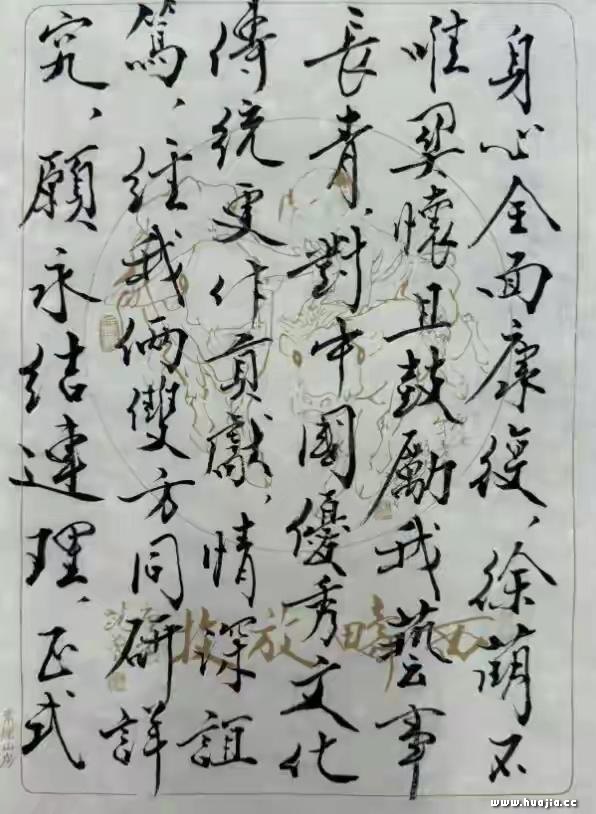 身心全面康復、徐萌不
唯異懷且鼓勵我藝事
長青、對中國優秀文化
傳統更作貢獻、情深誼
篤、經我倆雙方同研詳
究、願永結連理、正式
www.huajia.cc